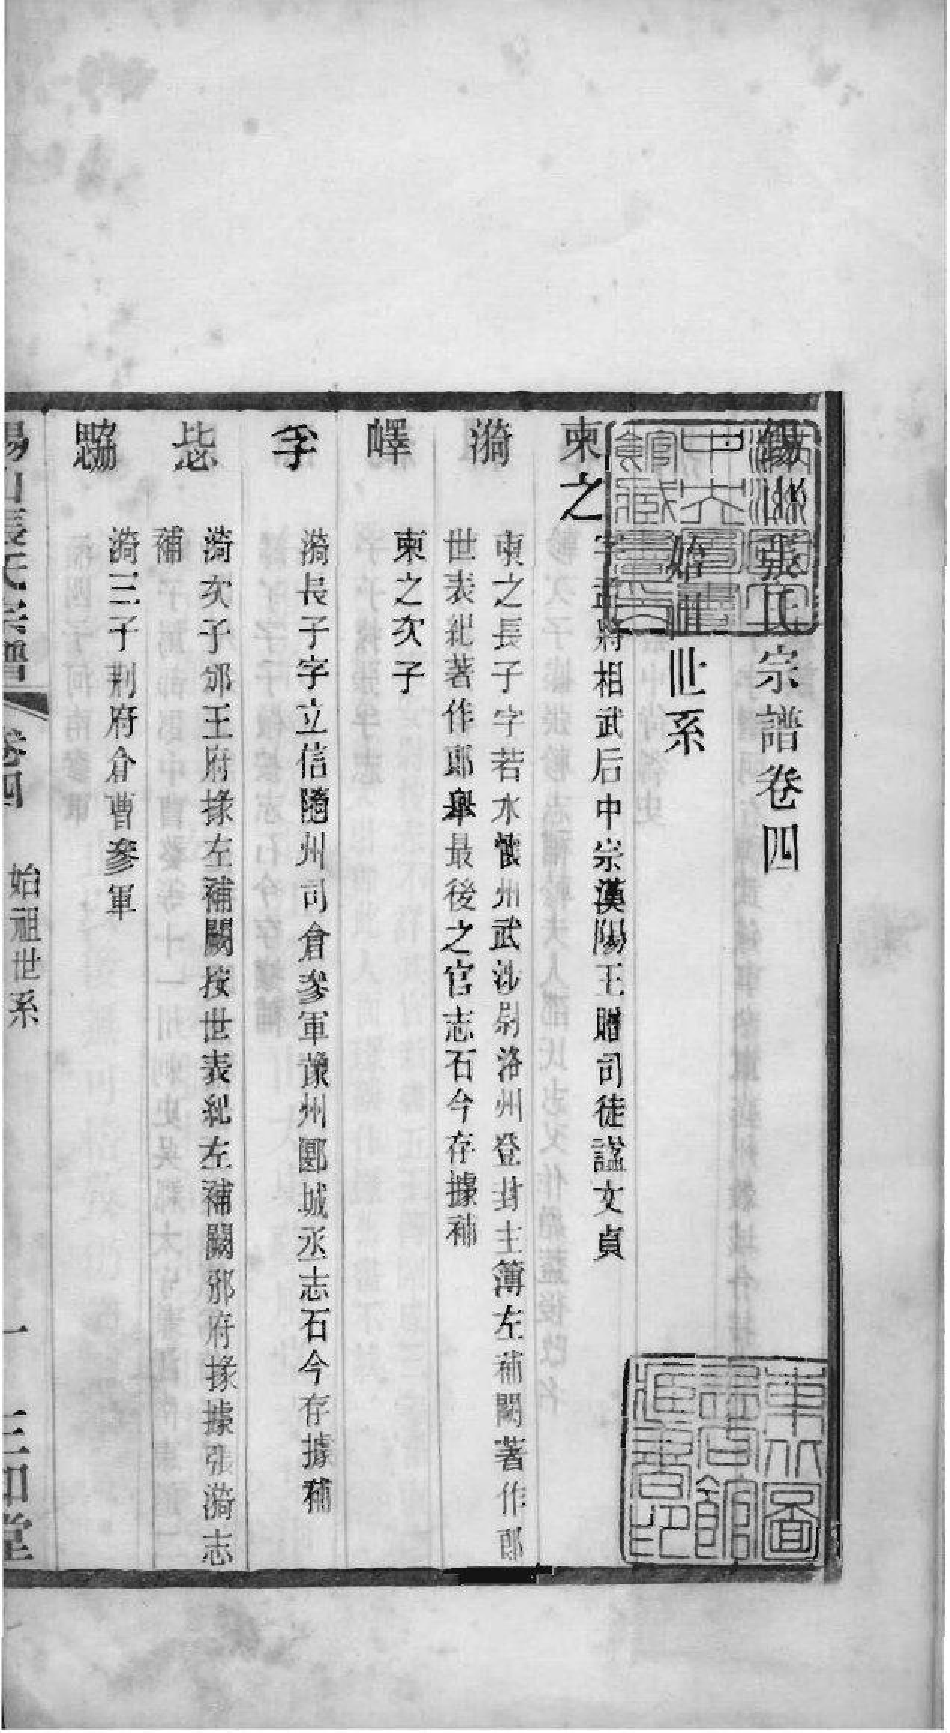 錫山張氏宗譜卷四
始祖世系
柬之 字孟將相武后中宗漢陽王贈司徒謚文貞
漪 柬之長子字若水懷州武涉尉洛州登封主簿左補闕著作郎
世表紀著作郎舉最後之官志石今存據補
嶧 柬之次子
孚 漪長子字立信隨州司倉參軍豫州郾城丞志石今存據補
毖 漪次子邠王府掾左補闕按世表紀左補闕邠府掾據張漪志
補
勰 漪三子荆府倉曹參軍
錫山張氏宗譜 卷四 始祖世系 一 三知堂